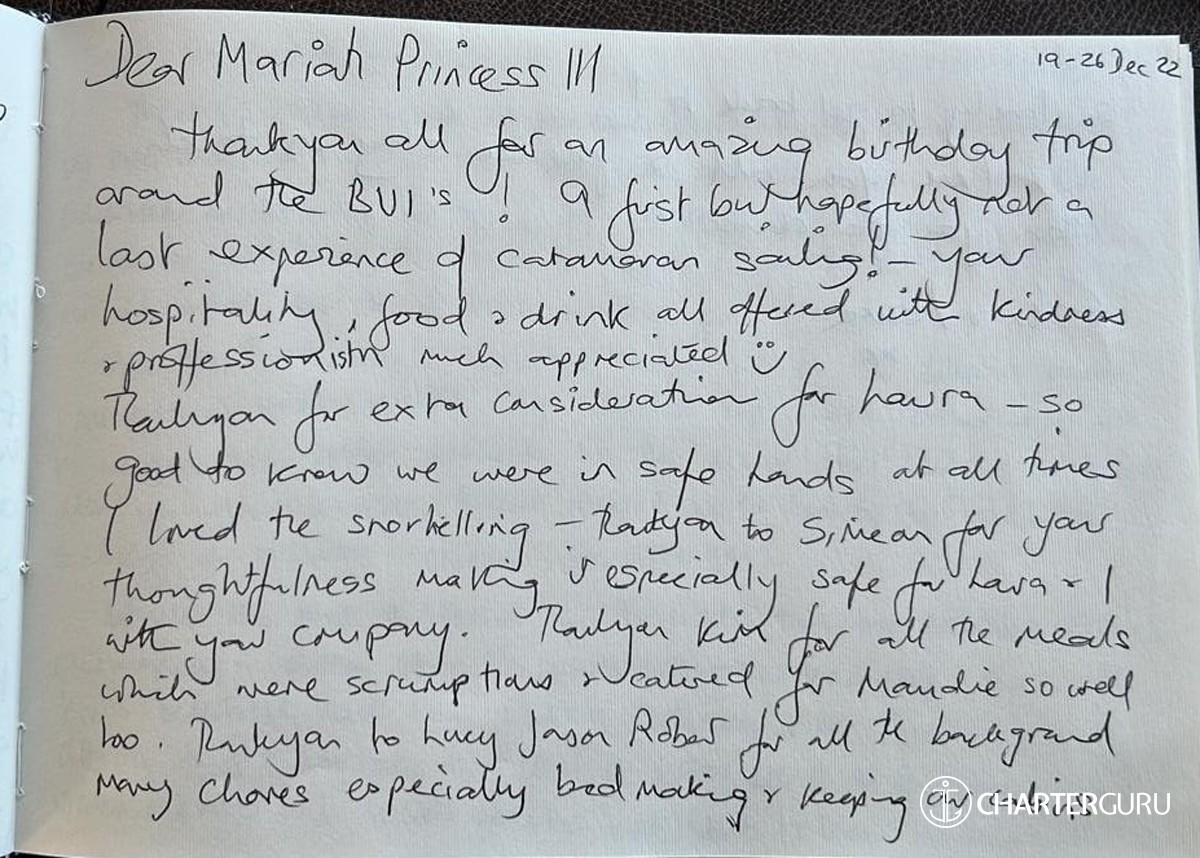 19-26 Dec 22
Dear Mariah Princess III
Thankyou all for an amazing birthday trip
around the BVI's! A first but hopefully not a
last experience of catamaran sailing! - your
hospitality, food & drink all offered with kindness
& proffessionism much appreciated
Thankyou for extra consideration for Laura - so
good to know we were in safe hands at all times
I loved the snorkelling - Thankyou to Simeon for your
thoughtfulness making it especially safe for Laura & I
with your company. Thankyou Kim for all the meals
which were scrumptious & catered for Maudie so well
too. Thankyou to Lucy Jason Robert for all the background
many chores especially bed making & keeping our cabins
CHARTERGURU